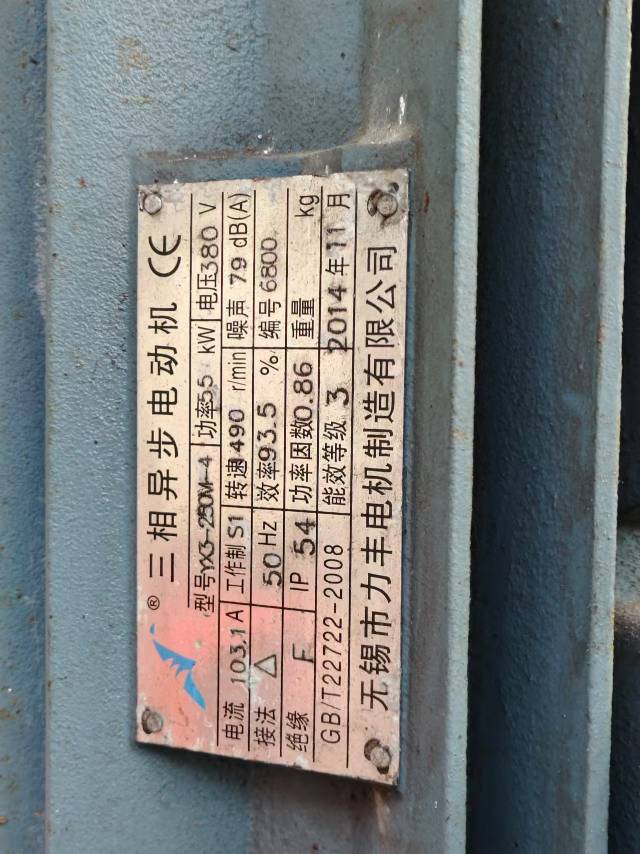 ® 三相异步电动机 CE
型号YX3-250M-4 功率55 kW 电压380 V
电流 103.1 A 工作制 S1 转速1490 r/min 噪声 79 dB(A)
接法 △ 50 Hz 效率93.5 % 编号 6800
绝缘 F IP 54 功率因数0.86 重量 kg
GB/T22722-2008 能效等级 3 2014 年 11 月
无锡市力丰电机制造有限公司